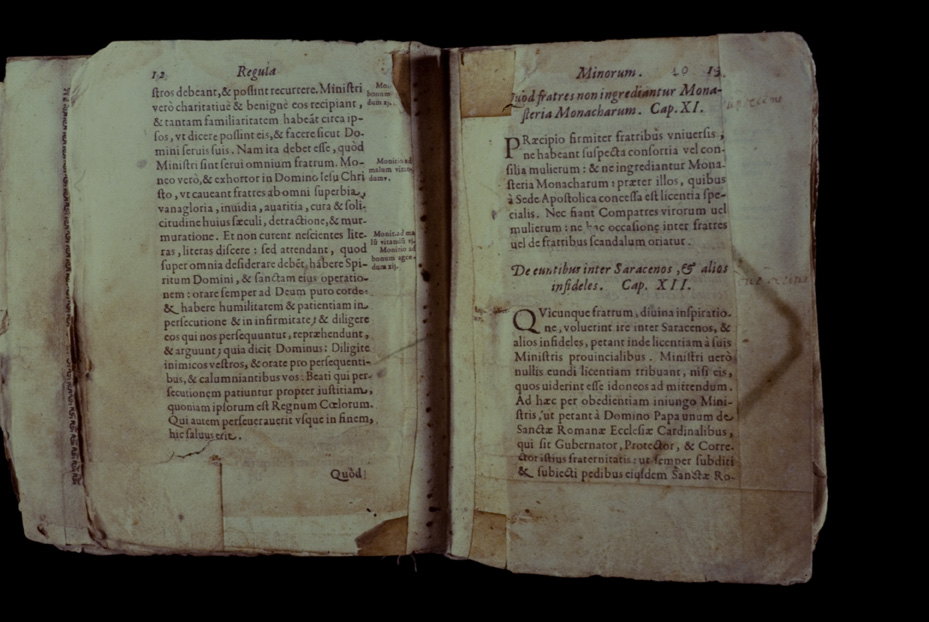 12 Regula
stros debeant, & possint recurrere. Ministri
verò charitatiuè & benignè eos recipiant,
& tantam familiaritatem habeāt circa ip-
sos, vt dicere possint eis, & facere sicut Do-
mini seruis suis. Nam ita debet esse, quòd
Ministri sint serui omnium fratrum. Mo-
neo verò, & exhortor in Domino Iesu Chri
sto, vt caueant fratres ab omni superbia,
vanagloria, inuidia, auaritia, cura & soli-
citudine huius sæculi, detractione, & mur-
muratione. Et non curent nescientes lite-
ras, literas discere: sed attendant, quod
super omnia desiderare debēt, habere Spi-
ritum Domini, & sanctam eius operatio-
nem: orare semper ad Deum puro corde,
& habere humilitatem & patientiam in
persecutione & in infirmitate; & diligere
eos qui nos persequuntur, repræhendunt,
& arguunt; quia dicit Dominus: Diligite
inimicos vestros, & orate pro persequenti-
bus, & calumniantibus vos. Beati qui per-
secutionem patiuntur propter iustitiam,
quoniam ipsorum est Regnum Cœlorum.
Qui autem perseuerauerit vsque in finem,
hic saluus erit.
Quòd
bonum
Monit. ad
malum
Monit. ad ma
Monitio ad
bonum agen-
dum xij.
Minorum. 20 13
Quòd fratres non ingrediantur Mona-
steria Monacharum. Cap. XI.
PRæcipio firmiter fratribus vniuersis,
ne habeant suspecta consortia vel con-
silia mulierum: & ne ingrediantur Mona-
steria Monacharum: præter illos, quibus
à Sede Apostolica concessa est licentia spe-
cialis. Nec fiant Compatres virorum uel
mulierum: ne hac occasione inter fratres
uel de fratribus scandalum oriatur.
De euntibus inter Saracenos, & alios
infideles. Cap. XII.
QVicunque fratrum, diuina inspiratio-
ne, voluerint ire inter Saracenos, &
alios infideles, petant inde licentiam à suis
Ministris prouincialibus. Ministri uerò
nullis eundi licentiam tribuant, nisi eis,
quos uiderint esse idoneos ad mittendum.
Ad hæc per obedientiam iniungo Mini-
stris, ut petant à Domino Papa unum de
Sanctæ Romanæ Ecclesiæ Cardinalibus,
qui sit Gubernator, Protector, & Corre-
ctor istius fraternitatis: ut semper subditi
& subiecti pedibus eiusdem Sanctæ Ro-